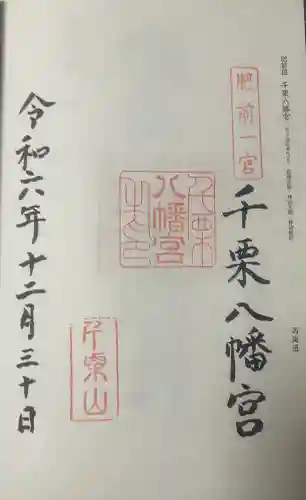 肥前国 千栗八幡宮
西海道
肥前一宮
千栗八幡宮
千栗八幡宮之印
千栗山
令和六年十二月三十日